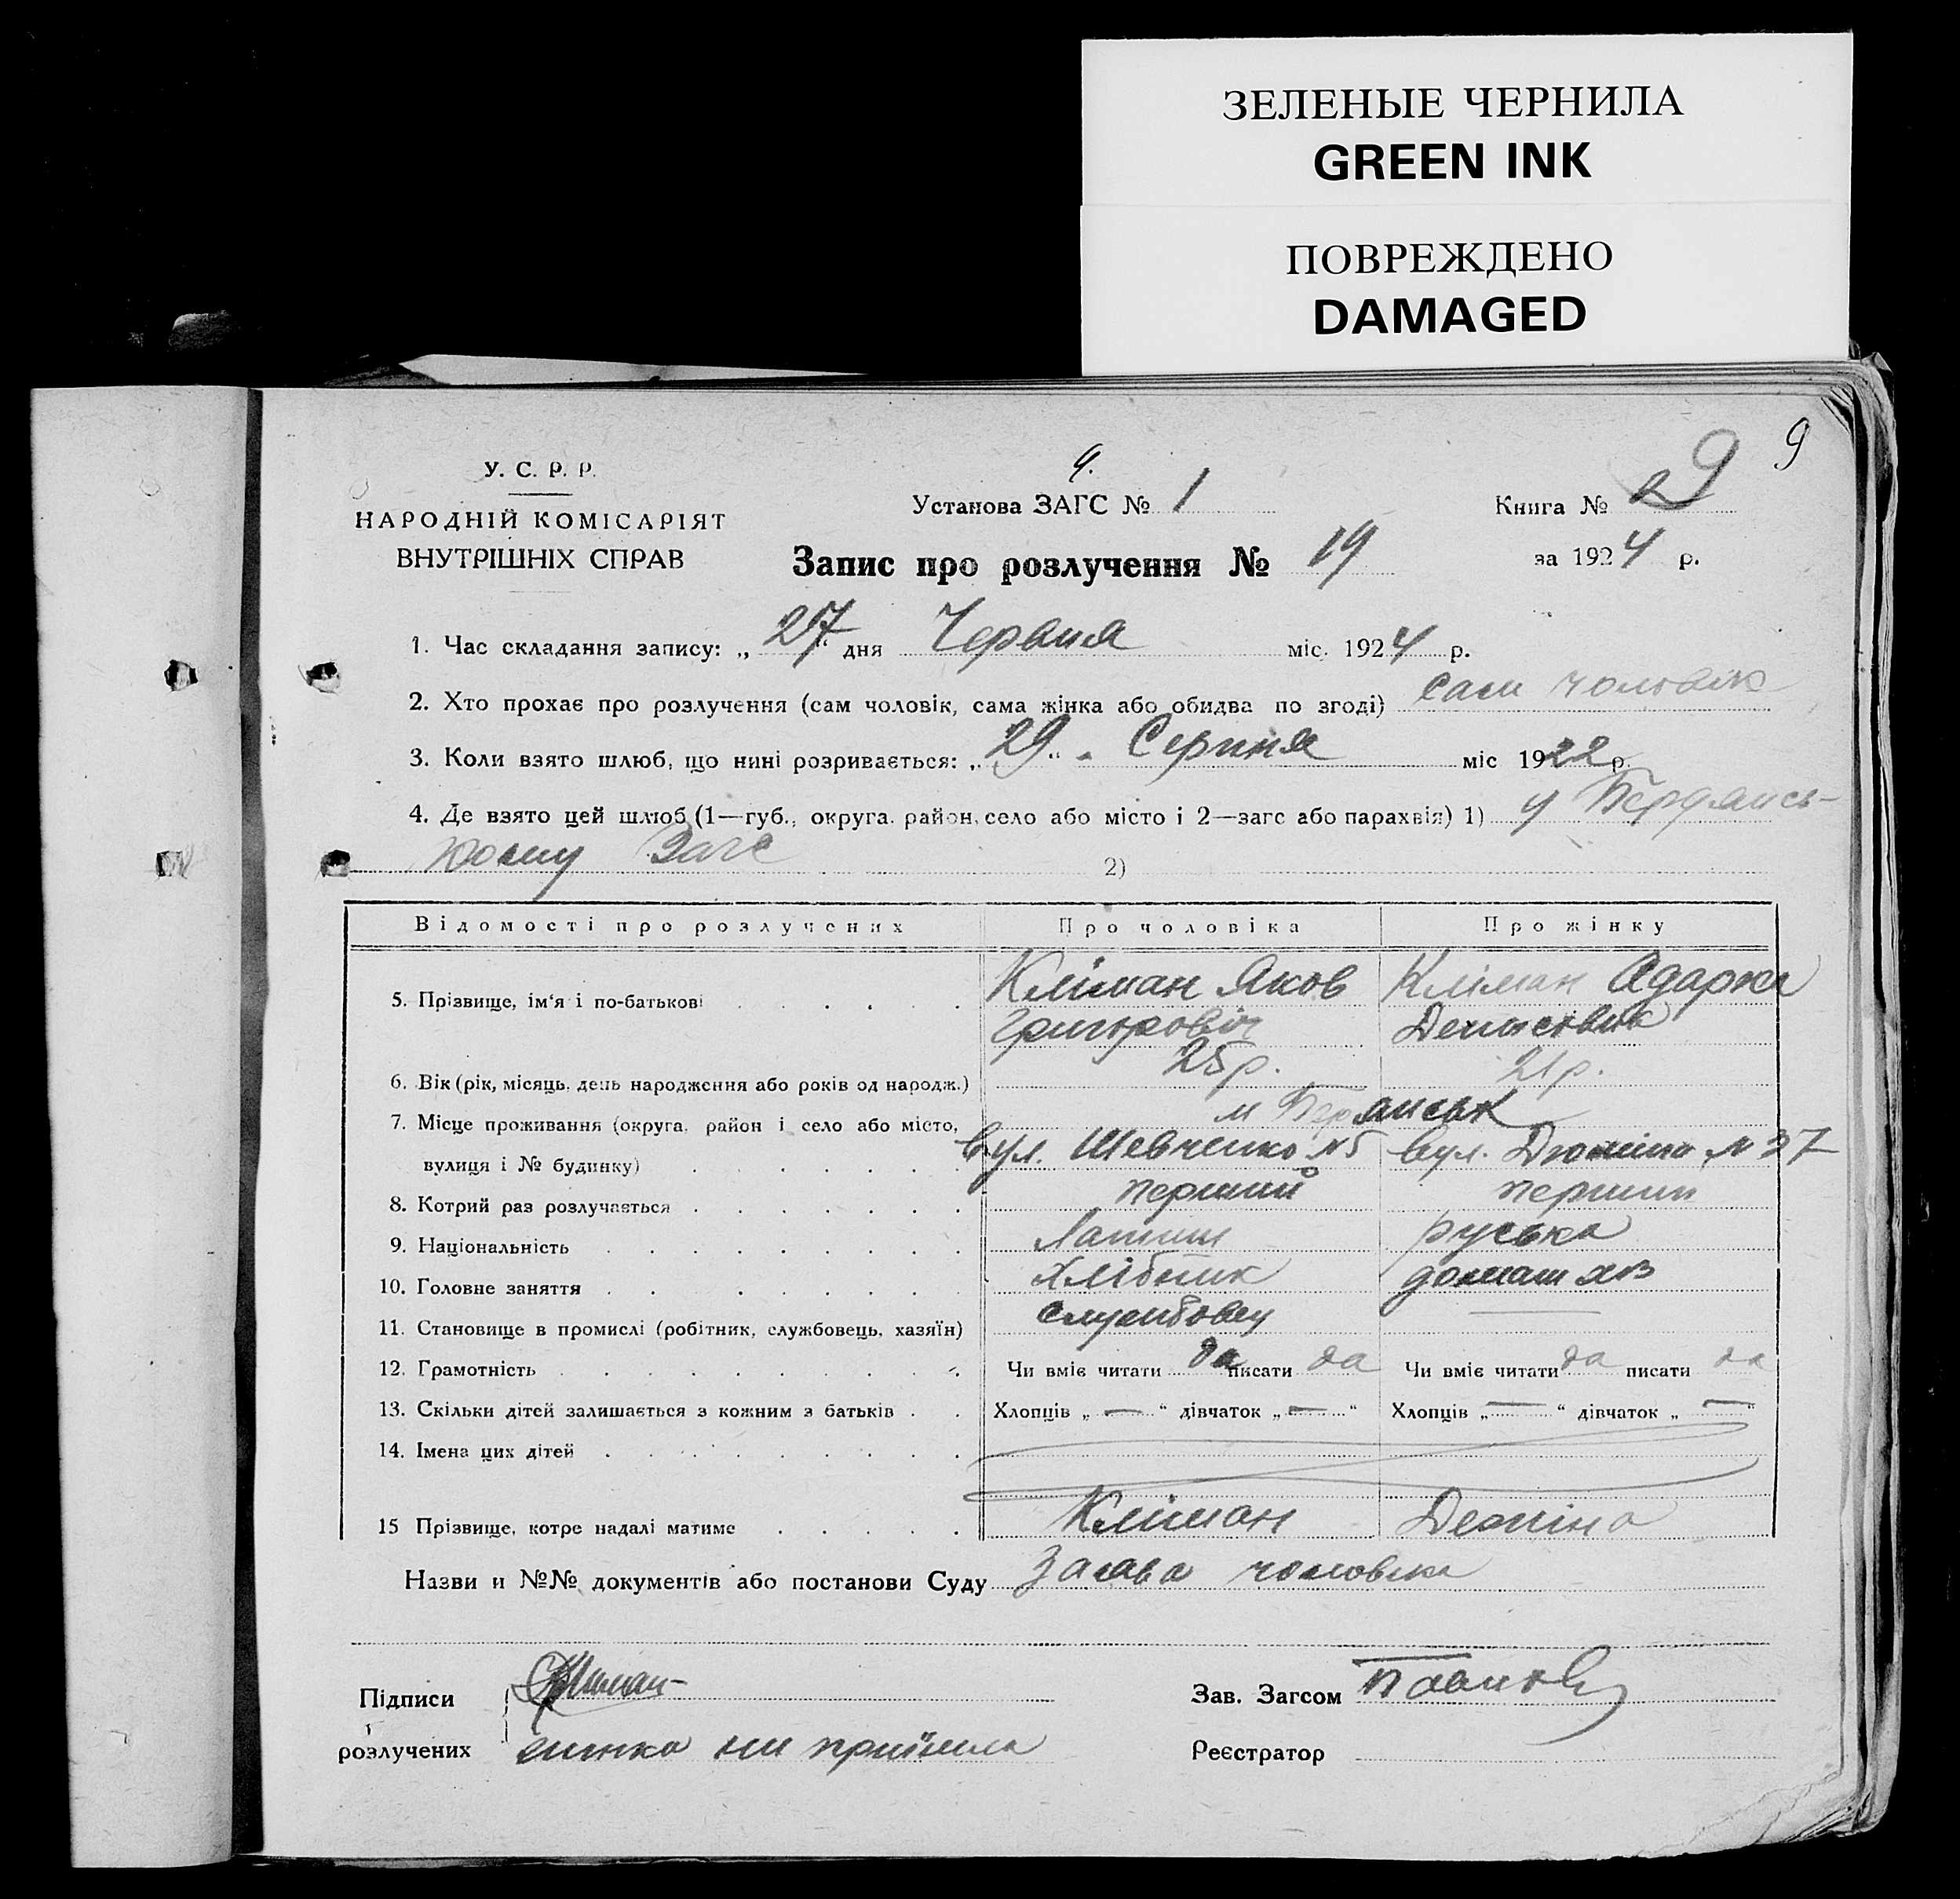 ЗЕЛЕНЫЕ ЧЕРНИЛА
GREEN INK
ПОВРЕЖДЕНО
DAMAGED
9
У. С. Р. Р.
НАРОДНІЙ КОМІСАРІЯТ
ВНУТРІШНІХ СПРАВ
Установа ЗАГС № 1
Книга №
за 1924 р.
Запис про розлучення № 19
1. Час складання запису: „27“ дня Червня міс. 1924 р.
2. Хто прохає про розлучення (сам чоловік, сама жінка або обидва по згоді) сам чоловік
3. Коли взято шлюб, що нині розривається: „29“ Серпня міс 1922 р.
4. Де взято цей шлюб (1—губ., округа, район, село або місто і 2—загс або парахвія) 1) у Бердянсь-
кому Загс 2)
Відомості про розлучених Про чоловіка Про жінку
5. Прізвище, ім'я і по-батькові Кліман Яков Кліман Одарка
Григоровіч Денисовна
6. Вік (рік, місяць, день народження або років од народж.) 25 р. 21 р.
7. Місце проживання (округа, район і село або місто, м Бердянськ
вулиця і № будинку) вул. Шевченко №5 вул. №37
8. Котрий раз розлучається перший перший
9. Національність Латиш руська
10. Головне заняття Хлібник домаш хоз
11. Становище в промислі (робітник, службовець, хазяїн) службовец
12. Грамотність Чи вміє читати да писати да Чи вміє читати да писати да
13. Скільки дітей залишається з кожним з батьків Хлопців „—“ дівчаток „—“ Хлопців „—“ дівчаток „—“
14. Імена цих дітей
15 Прізвище, котре надалі матиме Кліман Деміна
Назви и №№ документів або постанови Суду Заява чоловіка
Підписи Кліман
розлучених жинка ни прийшла
Зав. Загсом
Реєстратор